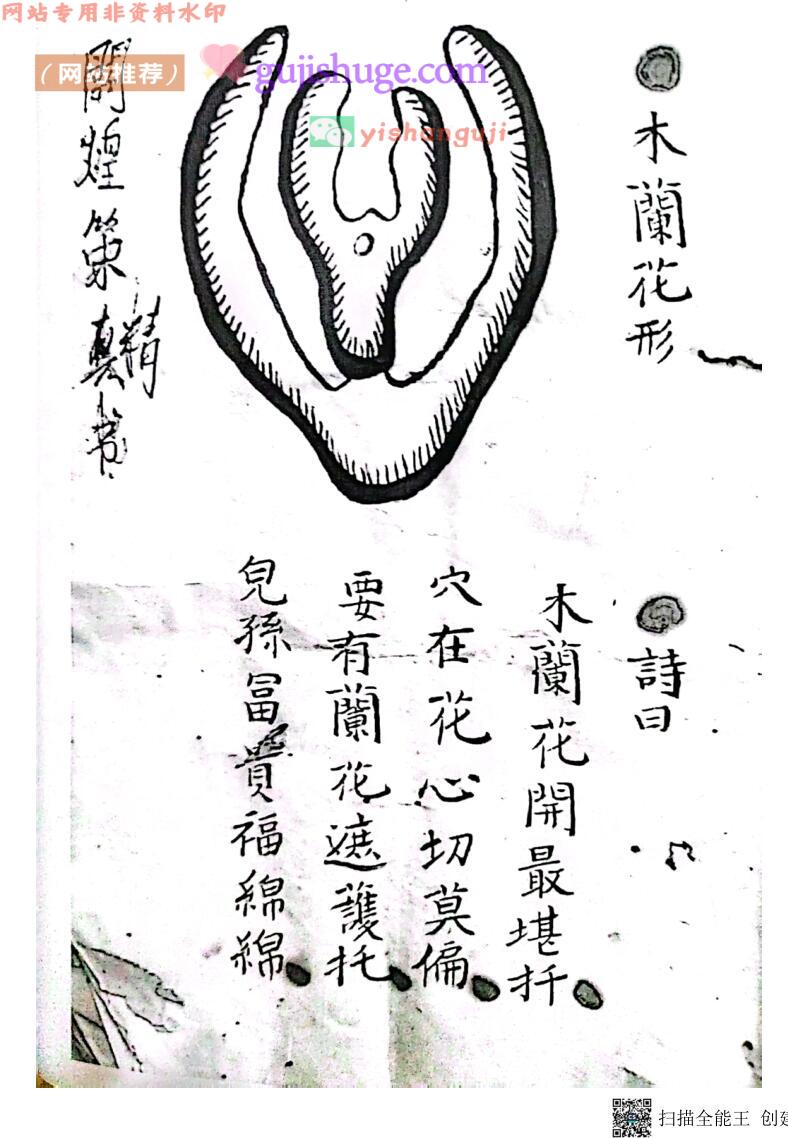 网站专用非资料水印
（网站推荐）
gujishuge.com
yishanguji
木蘭花形
詩曰
木蘭花開最堪扦
穴在花心切莫偏
要有蘭花遮護托
兒孫冨貴福綿綿
扫描全能王 创建